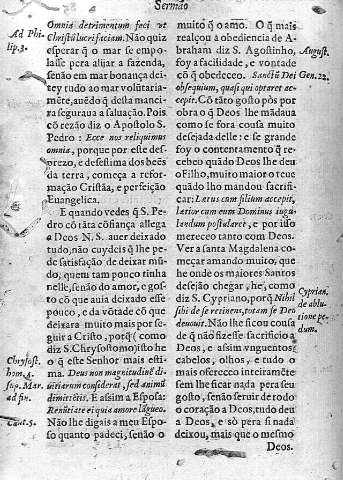 Sermão
Ad Philip.3.
Omnia detrimentum feci ut
Christũ lucrifaciam. Não quiz
esperar q̃ o mar se empo-
lasse pera alijar a fazenda,
senão em mar bonança dei-
tey tudo ao mar voluntaria-
mẽte, auẽdo q̃ desta manei-
ra seguraua a saluação. Pois
cõ rezão diz o Apostolo S.
Pedro: Ecce nos reliquimus
omnia, porque por este des-
prezo, e desestima dos beẽs
da terra, começa a refor-
mação Cristãa, e perfeição
Euangelica.
E quando vedes q̃ S. Pe-
dro cõ tãta cõfiança allega
a Deos N. S. auer deixado
tudo, não cuydeis q̃ lhe pe-
de satisfação de deixar mũ-
do, quem tam pouco tinha
nelle, senão do amor, e gos-
to cõ que auia deixado esse
pouco, e da võtade cõ que
deixara muito mais por se-
guir a Cristo, porq̃ (como
diz S. Chrysostomo) isto he
o q̃ este Senhor mais esti-
ma. Deus non magnitudinẽ di-
uitiarum considerat, sed animũ
dimittẽtis. E assim a Esposa:
Renũtiate ei quia amore lãgueo.
Não lhe digais a meu Espo-
so quanto padeci, senão o
Chrysost.
hom. 4.
sup. Mar.
ad fin.
Cant. 5.
muito q̃ o amo. O q̃ mais
realçou a obediencia de A-
braham diz S. Agostinho,
foy a facilidade, e vontade
cõ q̃ obedeceo. Sanctũ Dei
obsequium, quasi qui operet ac-
cepit. Cõ tãto gosto pòs por
obra o q̃ Deos lhe mãdaua
como se fora cousa muito
desejada delle: e se grande
foy o contentamento q̃ re-
cebeo quãdo Deos lhe deu
o Filho, muito maior o teue
quãdo lho mandou sacrifi-
car: Lætus cum filium accepit,
lætior cum eum Dominus iugu-
landum postularet, e por isso
mereceo tanto com Deos.
Ver a santa Magdalena co-
meçar amando muito, que
he onde os maiores Santos
desejão chegar, he, como
diz S. Cypriano, porq̃ Nihil
sibi de se retinens, totam se Deo
deuouit. Não lhe ficou cousa
de q̃ não fizesse sacrificio a
Deos, e assim vnguentos,
cabelos, olhos, e tudo o
mais offereco inteiramẽte
sem lhe ficar nada pera seu
gosto, senão seruir de todo
o coração a Deos, tudo deu
a Deos, e sò pera si nada
deixou, mais que o mesmo
Deos.
August.
Gen. 22.
Cyprian.
de ablu-
tione pe-
dum.